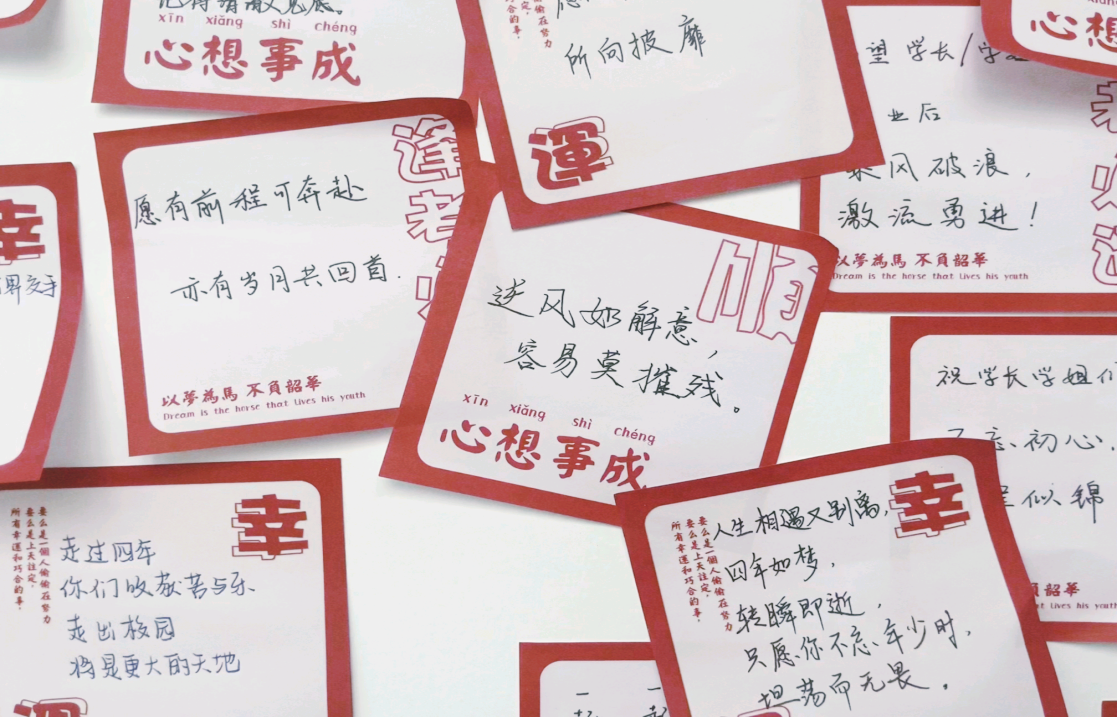 xīn xiǎng shì chéng
心想事成
所向披靡
運
望学长/学
业后
乘风破浪，
激流勇进！
以夢為馬 不負韶華
Dream is the horse that lives his youth
幸
逢考必
愿有前程可奔赴
亦有岁月共回首.
以夢為馬 不負韶華
Dream is the horse that lives his youth
順
逆风如解意，
容易莫摧残。
xīn xiǎng shì chéng
心想事成
祝学长学姐们
不忘初心，
似锦
韶華
lives his youth
幸
要么是一個人偷偷在努力
要么是上天註定，
所有幸運和巧合的事，
走过四年
你们收获苦与乐
走出校园
将是更大的天地
幸
要么是一個人偷偷在努力
要么是上天註定，
所有幸運和巧合的事，
人生相遇又别离，
四年如梦，
转瞬即逝，
只愿你不忘年少时，
坦荡而无畏。